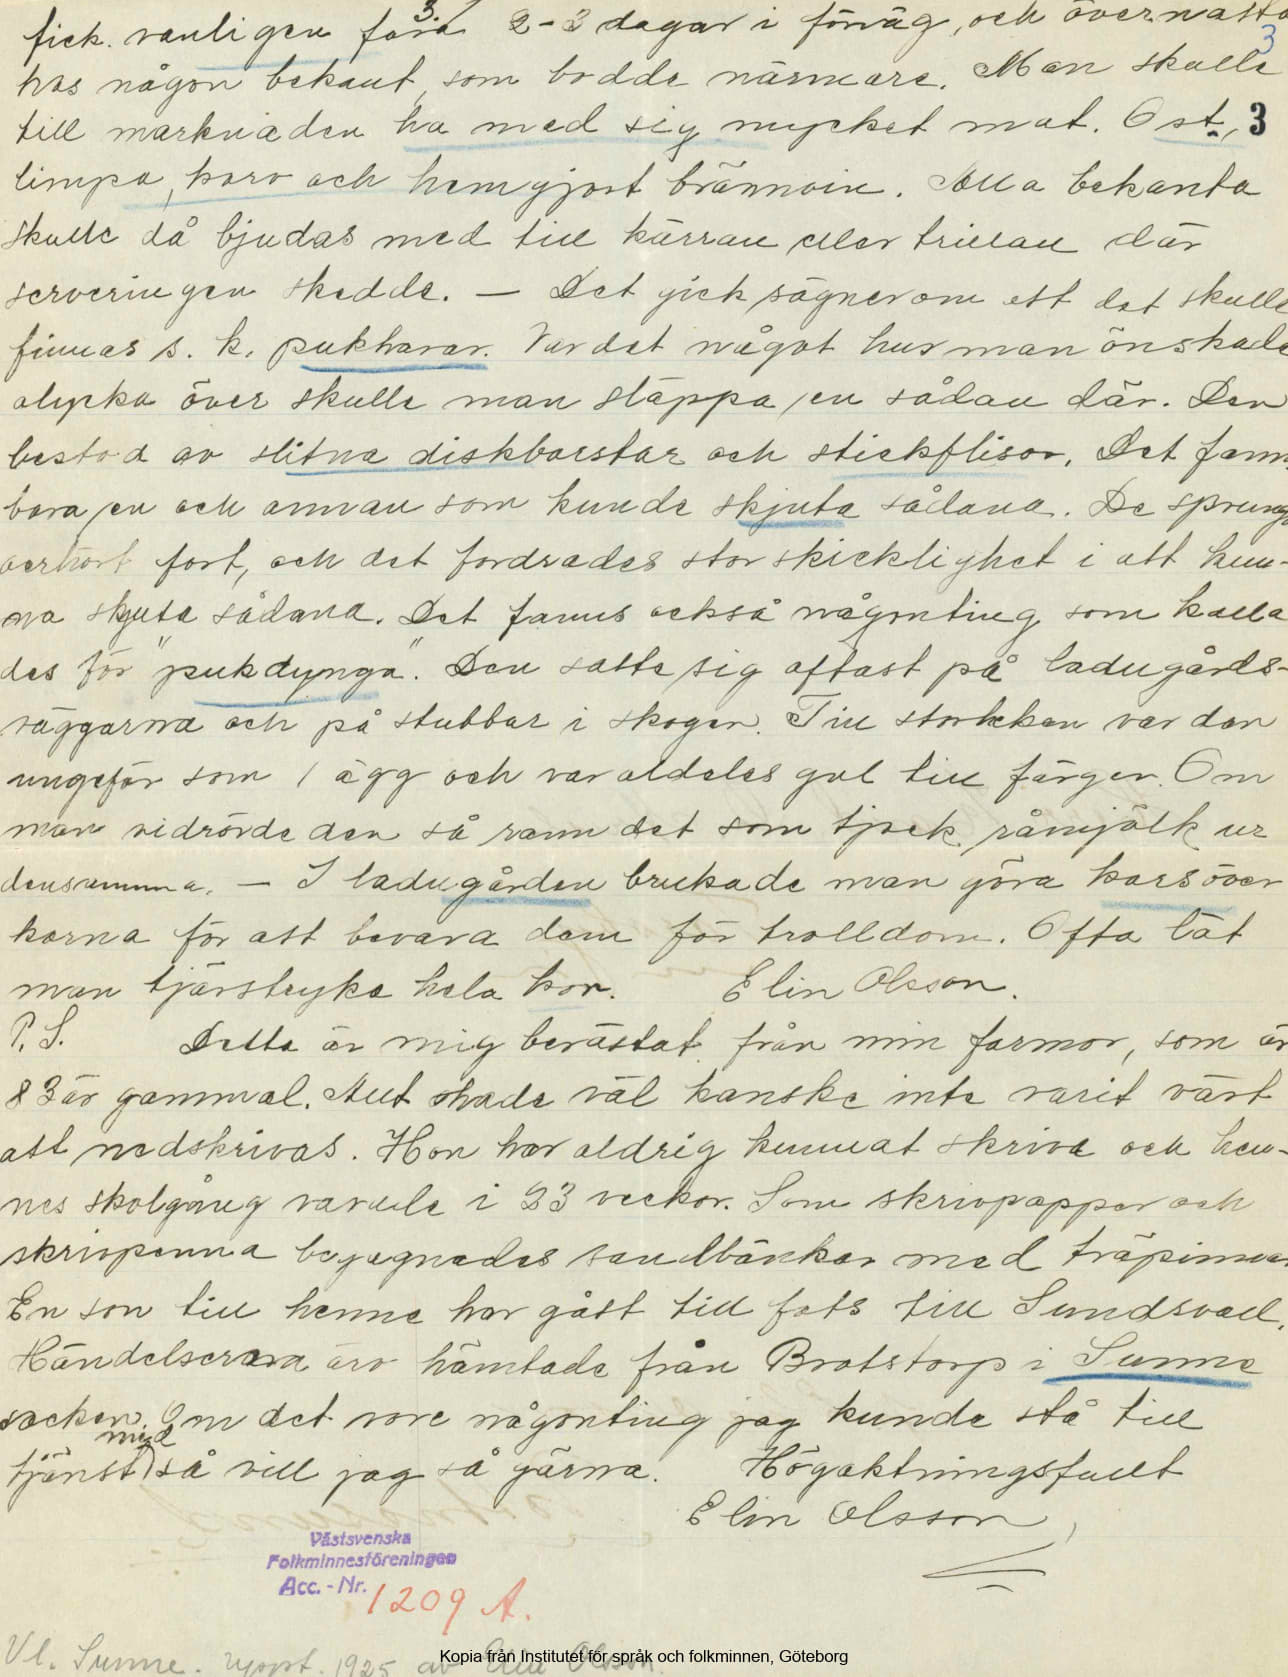 3.
fick vanligen fara 2-3 dagar i förväg, och övernatta
3
hos någon bekant, som bodde närmare. Man skulle
till marknaden ha med sig mycket mat. Ost, 3
limpa, korv och hemgjort brännvin. Alla bekanta
skulle då bjudas med till kärran eller trillan där
serveringen skedde. — Det gick sägner om att det skulle
finnas s. k. pukharar. Var det något hus man önskade
olycka över skulle man släppa en sådan där. Den
bestod av slitna diskborstar och stickflisor. Det fanns
bara en och annan som kunde skjuta sådana. De sprung
oerhört fort, och det fordrades stor skicklighet i att kun-
na skjuta sådana. Det fanns också någonting som kalla
des för "pukdynga". Den satte sig oftast på ladugårds-
väggarna och på stubbar i skogen. Till storleken var den
ungefär som 1 ägg och var aldeles gul till färgen. Om
man vidrörde den så rann det som tjock råmjölk ur
densamma. — I ladugården brukade man göra kors över
korna för att bevara dem för trolldom. Ofta lät
man tjärstryka hela kon. Elin Olsson.
P. S. Detta är mig berättat från min farmor, som är
83 år gammal. Allt hade väl kanske inte varit värt
att nedskrivas. Hon har aldrig kunnat skriva och hen-
nes skolgång varade i 23 veckor. Som skrivpapper och
skrivpenna begagnades sandbänkar med träpinnar
En son till henne har gått till fots till Sundsvall.
Händelserna äro hämtade från Brotstorp i Sunne
socken. Om det vore någonting jag kunde stå till
med
tjänst så vill jag så gärna. Högaktningsfullt
Elin Olsson
Västsvenska
Folkminnesföreningen
Acc. - Nr. 1209 A.
Vl. Sunne. uppt. 1925 av Elin Olsson.
Kopia från Institutet för språk och folkminnen, Göteborg